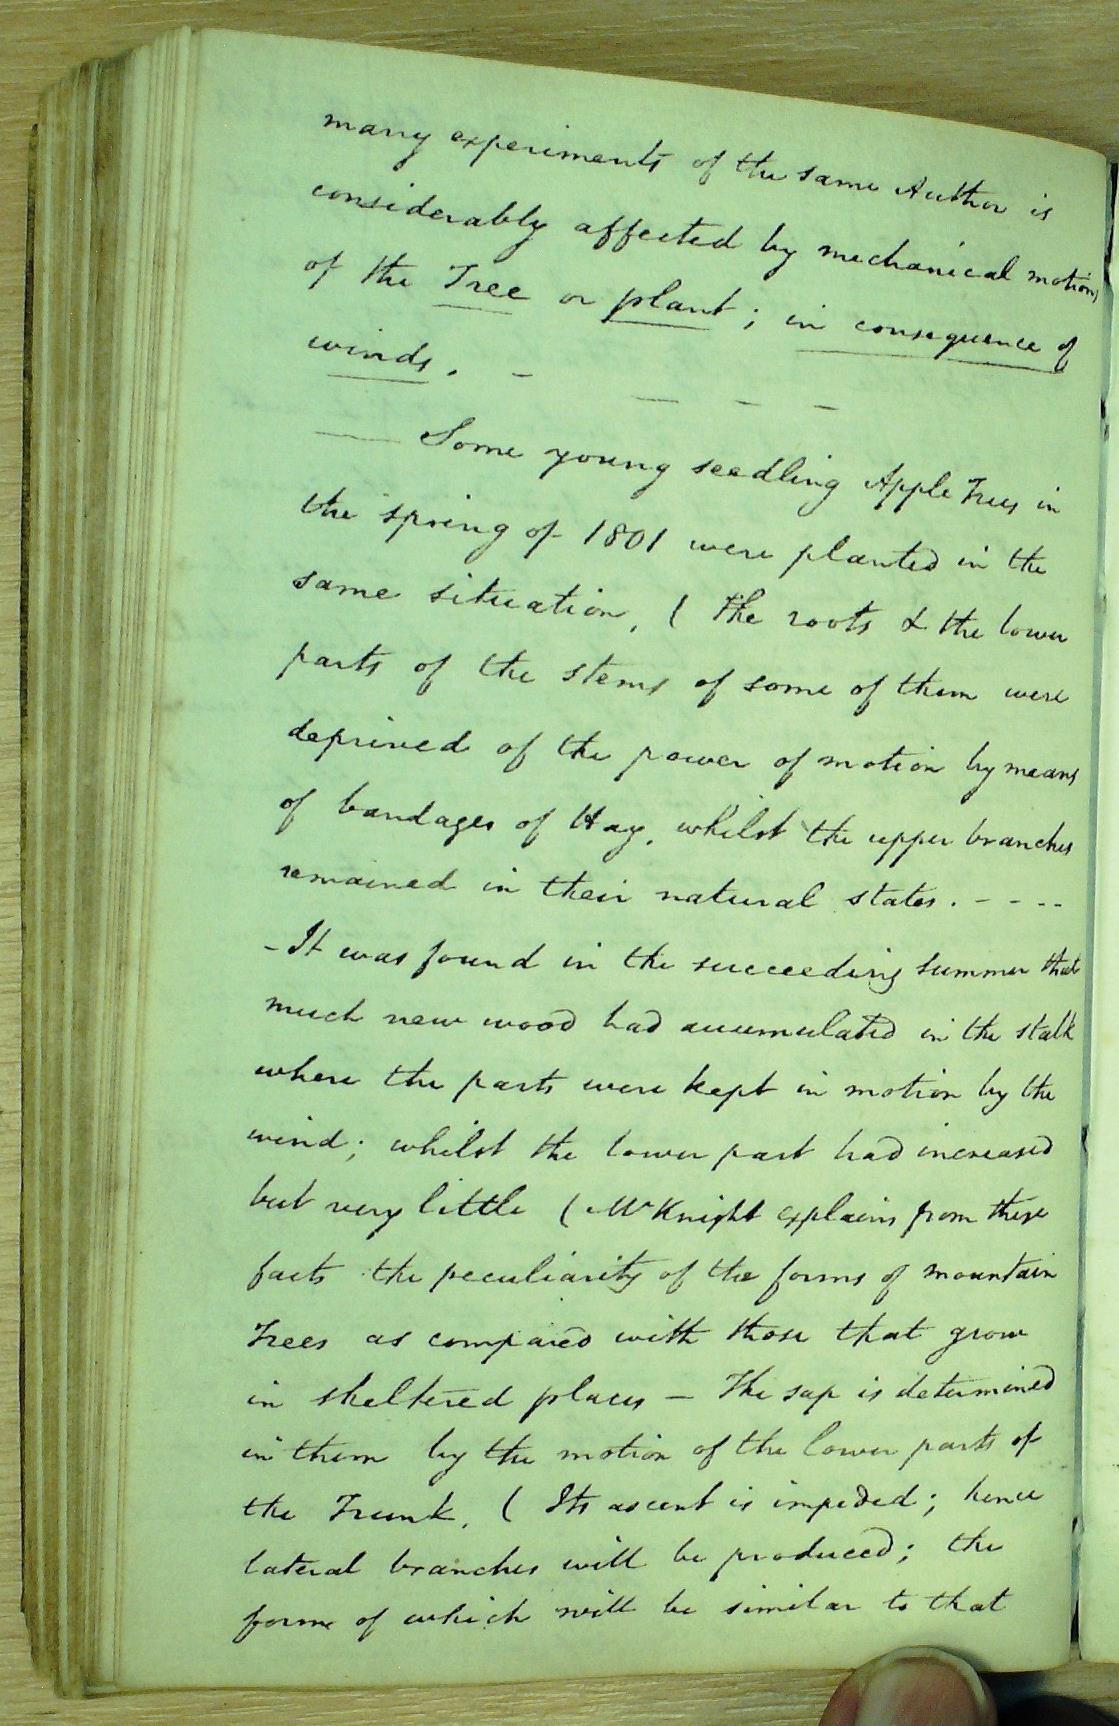 many experiments of the same Author is
considerably affected by mechanical motions
of the Tree or plant; in consequence of
winds. - — - -
— Some young seedling Apple Trees in
the spring of 1801 were planted in the
same situation, ( The roots & the lower
parts of the stems of some of them were
deprived of the power of motion by means
of bandages of Hay, whilst the upper branches
remained in their natural states. - - - -
- It was found in the succeeding summer that
much new wood had accumulated in the stalk
where the parts were kept in motion by the
wind; whilst the lower part had increased
but very little ( Mr Knight explains from these
facts the peculiarity of the forms of mountain
Trees as compared with those that grow
in sheltered places — The sap is determined
in them by the motion of the lower parts of
the Trunk. ( Its ascent is impeded; hence
lateral branches will be produced; the
form of which will be similar to that